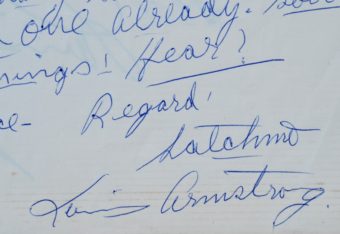 one already.
Hear?
Regard'
Satchmo
Louis Armstrong.